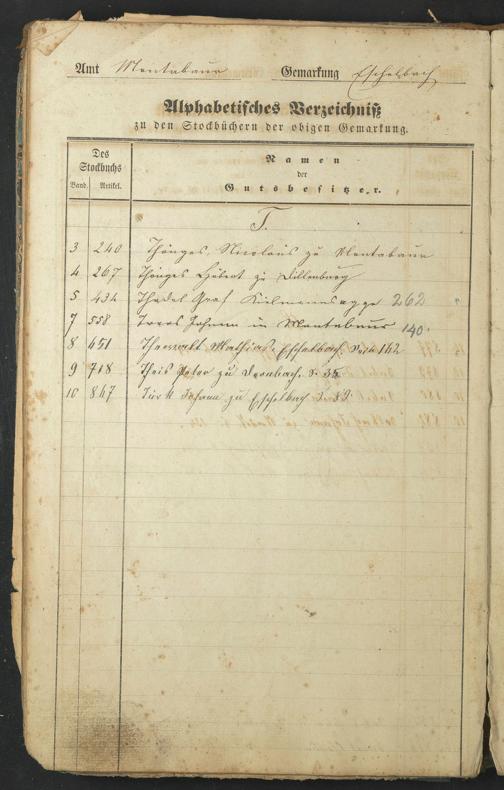 Amt Montabaur Gemarkung Eschelbach
Alphabetisches Verzeichniß
zu den Stockbüchern der obigen Gemarkung.
Des Stockbuchs
Band. Artikel.
Namen
der
Gutsbesitzer.
T.
3 240 Thönges, Nicolaus zu Montabaur
4 267 Thönges Hubert zu Dillenburg
5 434 Graf 262
7 558 Johann in Montabaur 140.
8 651 Mathias, Eschelbach, 142
9 718 Theis Peter zu Dernbach. S. 35
10 847 Türk Johann zu Eschelbach S.